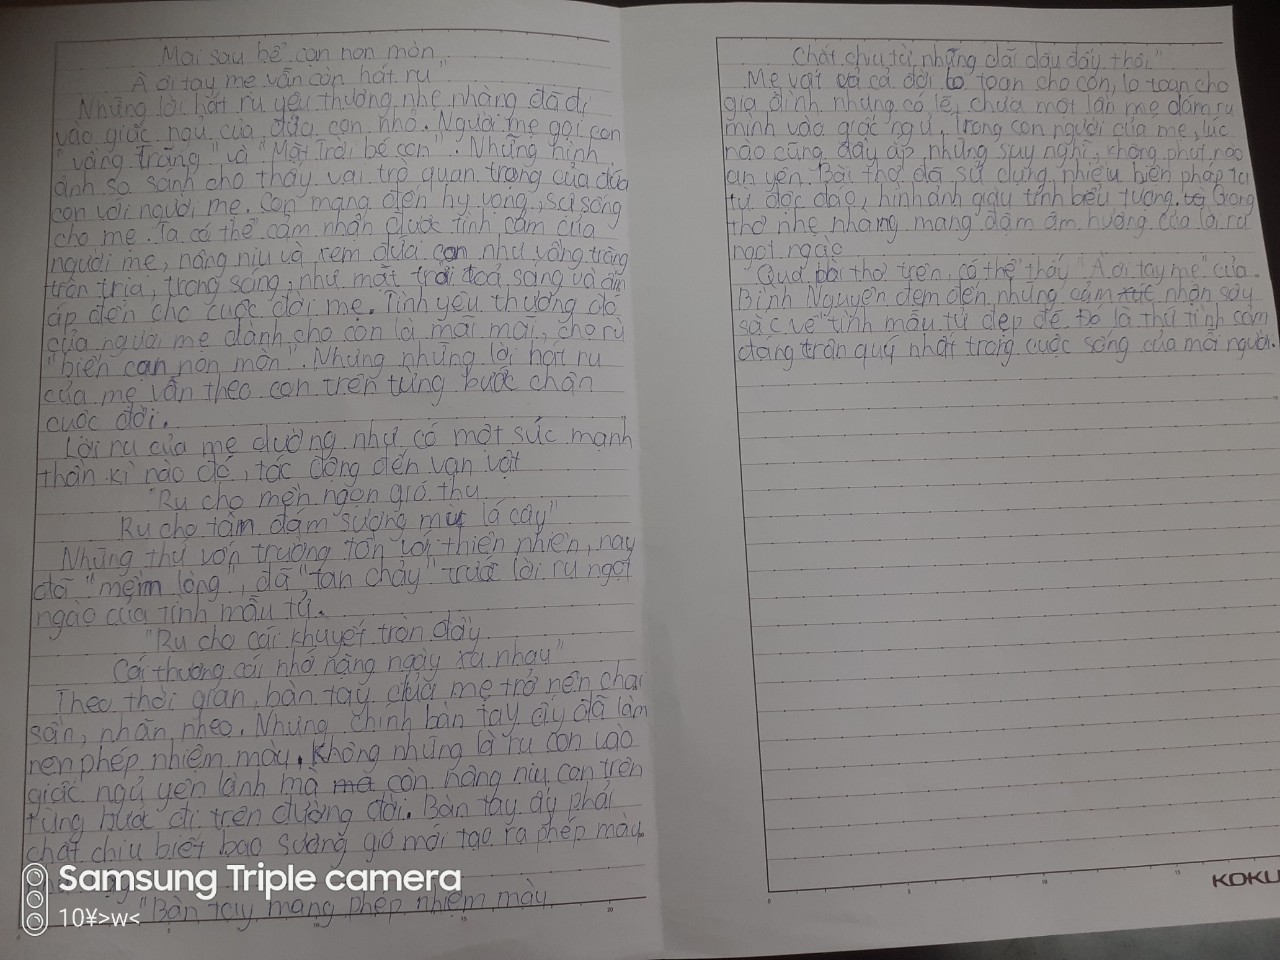 Mai sau bể cạn non mòn
À ơi tay mẹ vẫn còn hát ru"
Những lời hát ru yêu thương, nhẹ nhàng đã đi
vào giấc ngủ của đứa con nhỏ. Người mẹ gọi con
"vầng trăng" và "Mặt Trời bé con". Những hình
ảnh so sánh cho thấy vai trò quan trọng của đứa
con với người mẹ. Con mang đến hy vọng, sự sống
cho mẹ. Ta có thể cảm nhận được tình cảm của
người mẹ, nâng niu và xem đứa con như vầng trăng
tròn trịa, trong sáng, như mặt trời toả sáng và ấm
áp đến cho cuộc đời mẹ. Tình yêu thương đó
của người mẹ dành cho con là mãi mãi, cho dù
"biển cạn non mòn". Nhưng những lời hát ru
của mẹ vẫn theo con trên từng bước chân
cuộc đời.
Lời ru của mẹ dường như có một sức mạnh
thần kì nào đó, tác động đến vạn vật
"Ru cho mềm ngọn gió thu
Ru cho tan đám sương mù lá cây"
Những thứ vốn trường tồn với thiên nhiên, nay
đã "mềm lòng", đã "tan chảy" trước lời ru ngọt
ngào của tình mẫu tử.
"Ru cho cái khuyết tròn đầy
Cái thương cái nhớ nặng ngày xa nhau"
Theo thời gian, bàn tay của mẹ trở nên chai
sần, nhăn nheo. Nhưng chính bàn tay ấy đã làm
nên phép nhiệm màu. Không những là ru con vào
giấc ngủ yên lành mà còn nâng niu con trên
từng bước đi trên đường đời. Bàn tay ấy phải
chắt chiu biết bao sương gió mới tạo ra phép màu
"Bàn tay mang phép nhiệm mày
Chắt chiu từ những dãi dầu đấy thôi"
Mẹ vất vả cả đời lo toan cho con, lo toan cho
gia đình nhưng có lẽ, chưa một lần mẹ dám ru
mình vào giấc ngủ. Trong con người của mẹ, lúc
nào cũng đầy ắp những suy nghĩ, không phút nào
an yên. Bài thơ đã sử dụng nhiều biện pháp tu
từ độc đáo, hình ảnh giàu tính biểu tượng. Giọng
thơ nhẹ nhàng mang đậm âm hưởng của lời ru
ngọt ngào
Qua bài thơ trên, có thể thấy "À ơi tay mẹ" của
Bình Nguyên đem đến những cảm nhận sây
sắc về tình mẫu tử đẹp đẽ. Đó là thứ tình cảm
đáng trân quý nhất trong cuộc sống của mỗi người.
KOKU
Samsung Triple camera
10¥>w<